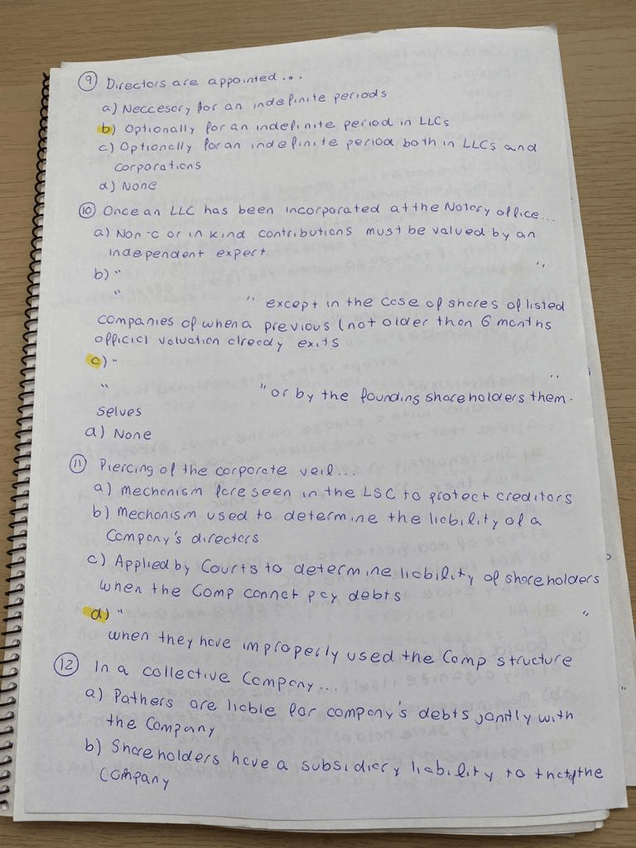 9 Directors are appointed...
a) Neccesory for an indefinite periods
b) Optionally for an indefinite period in LLCs
c) Optionally for an indefinite period both in LLCs and
corporations
d) None
10 Once an LLC has been incorporated at the Notary office...
a) Non-c or in kind contributions must be valued by an
independent expert
b) " "
" " except in the case of shares of listed
companies of when a previous (not older than 6 months
official valuation already exits
c) " "
" " or by the founding shareholders them-
selves
d) None
11 Piercing of the corporate veil...
a) mechanism foreseen in the LSC to protect creditors
b) Mechanism used to determine the liability of a
Company's directors
c) Applied by Courts to determine liability of shareholders
when the Comp cannot pay debts
d) " "
when they have improperly used the Comp structure
12 In a collective Company....
a) Pathers are liable for company's debts jantly with
the Company
b) Shareholders have a subsidiary liability to the
company